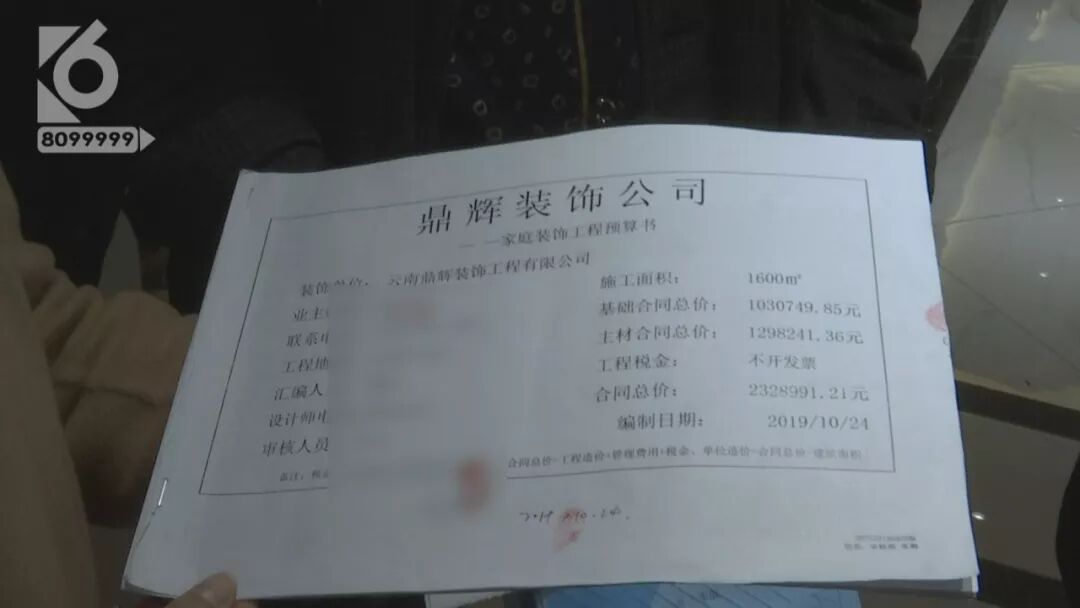 K6
8099999
鼎辉装饰公司
——家庭装饰工程预算书
装饰单位: 云南鼎辉装饰工程有限公司
业主
联系电
工程地
汇编人
设计师电
审核人员
备注:
施工面积: 1600㎡
基础合同总价: 1030749.85元
主材合同总价: 1298241.36元
工程税金: 不开发票
合同总价: 2328991.21元
编制日期: 2019/10/24
合同总价=工程造价+管理费用+税金、单位造价=合同总价÷建筑面积